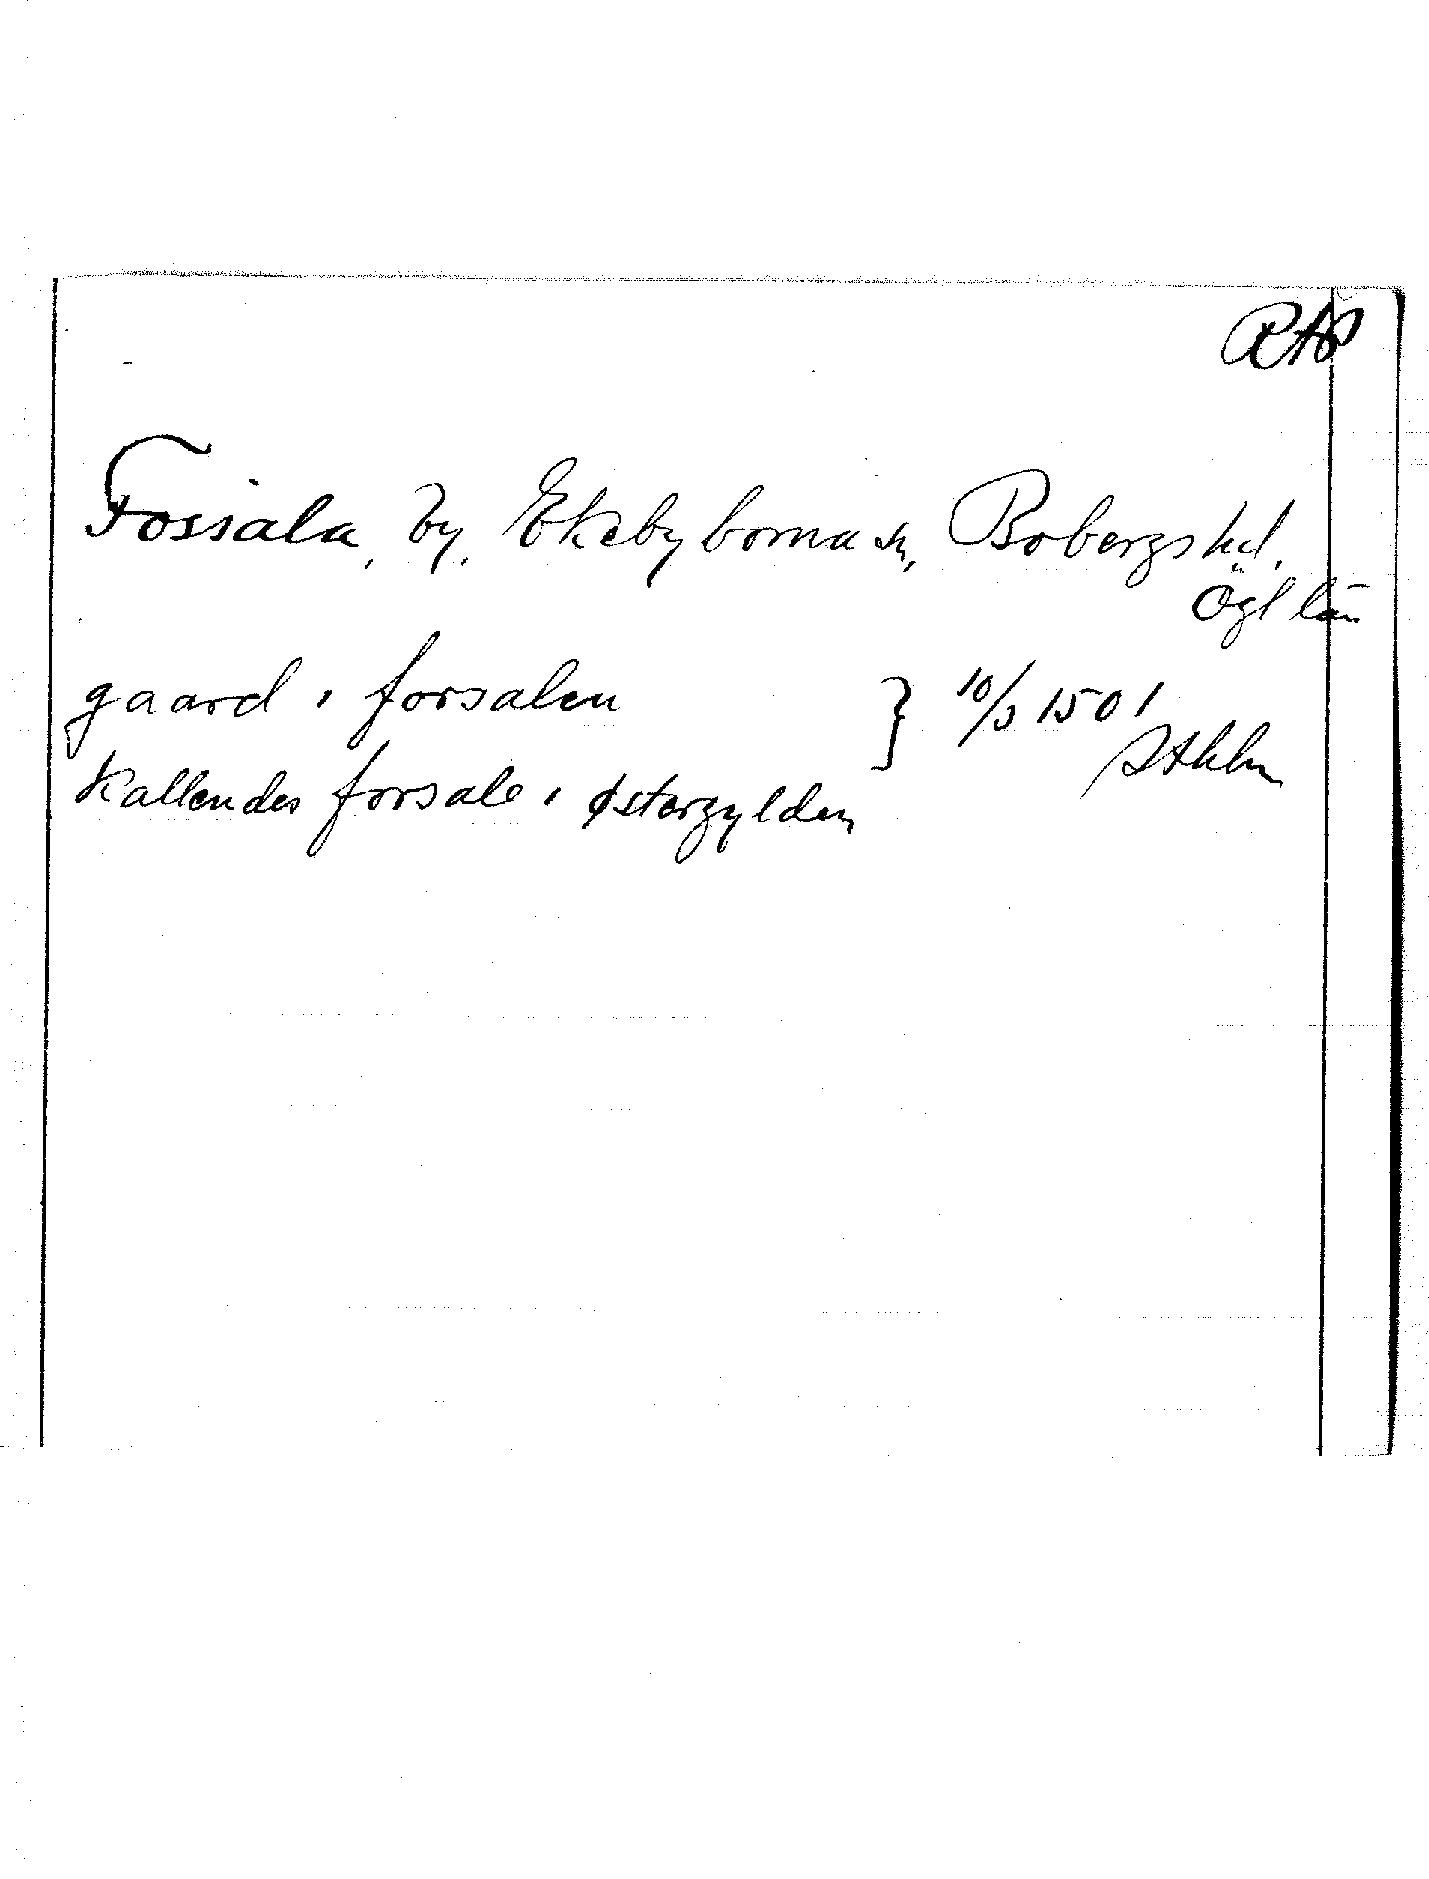 RAP
Fossala, by, Ekebyborna sn, Bobergs hd.
Ögl län
gaard i forsalen } 10/3 1501
Sthlm
kallendes forsale i østergylden